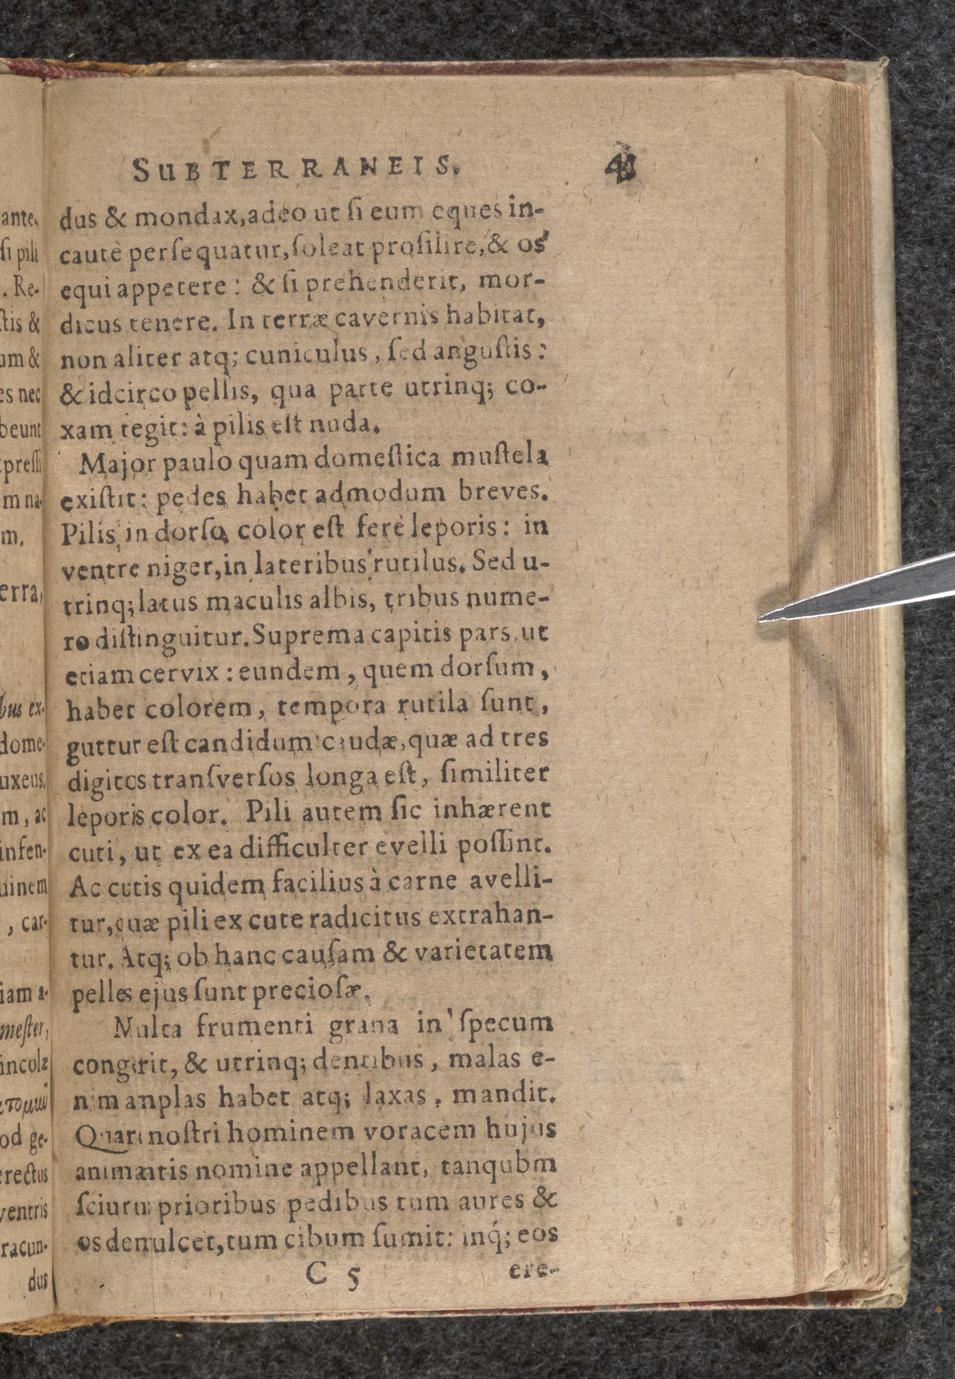 SUBTERRANEIS. 41
dus & mondax, adeo ut ſi eum eques in-
cautè perſequatur, ſoleat proſilire, & os
equi appetere : & ſi prehenderit, mor-
dicus tenere. In terræ cavernis habitat,
non aliter atq; cuniculus, ſed anguſtis :
& idcirco pellis, qua parte utrinq; co-
xam tegit : à pilis eſt nuda.
Major paulo quam domeſtica muſtela
exiſtit : pedes habet admodum breves.
Pilis in dorſo color eſt ferè leporis : in
ventre niger, in lateribus rutilus. Sed u-
trinq; latus maculis albis, tribus nume-
ro diſtinguitur. Suprema capitis pars, ut
etiam cervix : eundem, quem dorſum,
habet colorem, tempora rutila ſunt,
guttur eſt candidum : caudæ, quæ ad tres
digitos tranſverſos longa eſt, ſimiliter
leporis color. Pili autem ſic inhærent
cuti, ut ex ea difficulter evelli poſſint.
Ac cutis quidem facilius à carne avelli-
tur, quæ pili ex cute radicitus extrahan-
tur. Atq; ob hanc cauſam & varietatem
pelles ejus ſunt precioſæ.
Multa frumenti grana in ſpecum
congerit, & utrinq; dentibus, malas e-
nim anplas habet atq; laxas, mandit.
Quare noſtri hominem voracem hujus
animantis nomine appellant, tanqubm
ſciurus prioribus pedibus tum aures &
os demulcet, tum cibum ſumit : inq́; eos
C 5 ere-
ante.
ſi pili
. Re-
ſtis &
um &
es nec
beunt
preſſi
m na-
m.
erra,
bus ex-
dome-
uxeus.
m, ac
infen-
uinem
, car-
iam a-
meſter,
incolæ
od ge-
rectus
ventris
racun-
dus